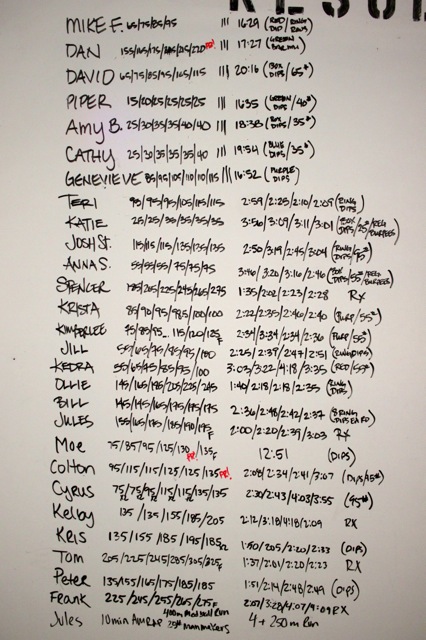 RESUL
MIKE F. 65/75/85/95 ||| 16:29 (RED/RING DID/ROWS)
DAN 155/165/175/185/215/220 PR! ||| 17:27 (GREEN
DAVID 65/75/85/95/105/115 ||| 20:16 (BOX DIPS/65#)
PIPER 15/20/25/25/25/25 ||| 16:35 (GREEN/40#)
Amy B. 25/30/35/35/40/40 ||| 18:38 (BOX DIPS/35#)
CATHY 25/30/35/35/35/40 ||| 19:54 (BLUE DIPS/35#)
GENEVIEVE 85/95/105/110/110/115 ||| 16:52 (PURPLE DIPS)
TERI 95/95/105/115/115 2:59/2:25/2:10/2:09 (RING DIPS)
KATIE 25/25/35/35/35/35 3:56/3:09/3:11/3:01 (BOX DIPS/25#/PEG BURPEES)
JOSH ST. 115/115/115/135/135/135 2:50/3:19/2:45/3:04 (RING DIPS/
ANNA S. 55/55/55/75/75/75 3:46/3:20/3:16/2:46 (BOX DIPS/55#/PEG BURPEES)
SPENCER 185/205/225/245/265/275 1:35/2:02/2:23/2:28 RX
KRISTA 85/90/95/985/100/100 2:22/2:35/2:46/2:40 (PURP/55#)
KIMBERLEE 75/85/95... 115/120/125F 2:34/3:34/2:34/2:36 (PURP/55#)
JILL 55/65/75/85/95/100 2:25/2:39/2:47/2:51 (RING DIPS)
KEDRA 50/65/45/85/95/100 3:03/3:22/4:18/3:35 (RED/55#)
OLLIE 145/165/185/205/225/245 1:40/2:18/2:18/2:35 (RING DIPS)
BILL 145/145/165/175/175/175 2:36/2:48/2:42/2:37 (8 RING DIPS EA RD)
JULES 155/165/175/185/190/175F 2:00/2:20/2:39/3:03 RX
Moe 75/85/95/125/130 PR!/135F 12:51 (DIPS)
Colton 95/115/115/125/125/135 PR! 2:08/2:34/2:41/3:07 (DIPS/95#)
Cyrus 75/75/95/115/115/135/135 2:30/2:43/4:03/3:55 (95#)
Kelby 135/135/155/185/205 2:12/3:18/4:18/2:09 RX
Kris 135/155/185/195/185 1:50/205/2:20/2:33 (DIPS)
Tom 205/225/245/285/305/325F 1:37/2:01/2:20/2:23 RX
Peter 135/155/165/175/185/185 1:51/2:14/2:48/2:49 (DIPS)
Frank 225/245/255/265/275F 2:07/3:28/4:07/4:09 RX
Jules 10 min AMRAP 400m Med ball Run 25# Manmakers 4 + 250 m Run